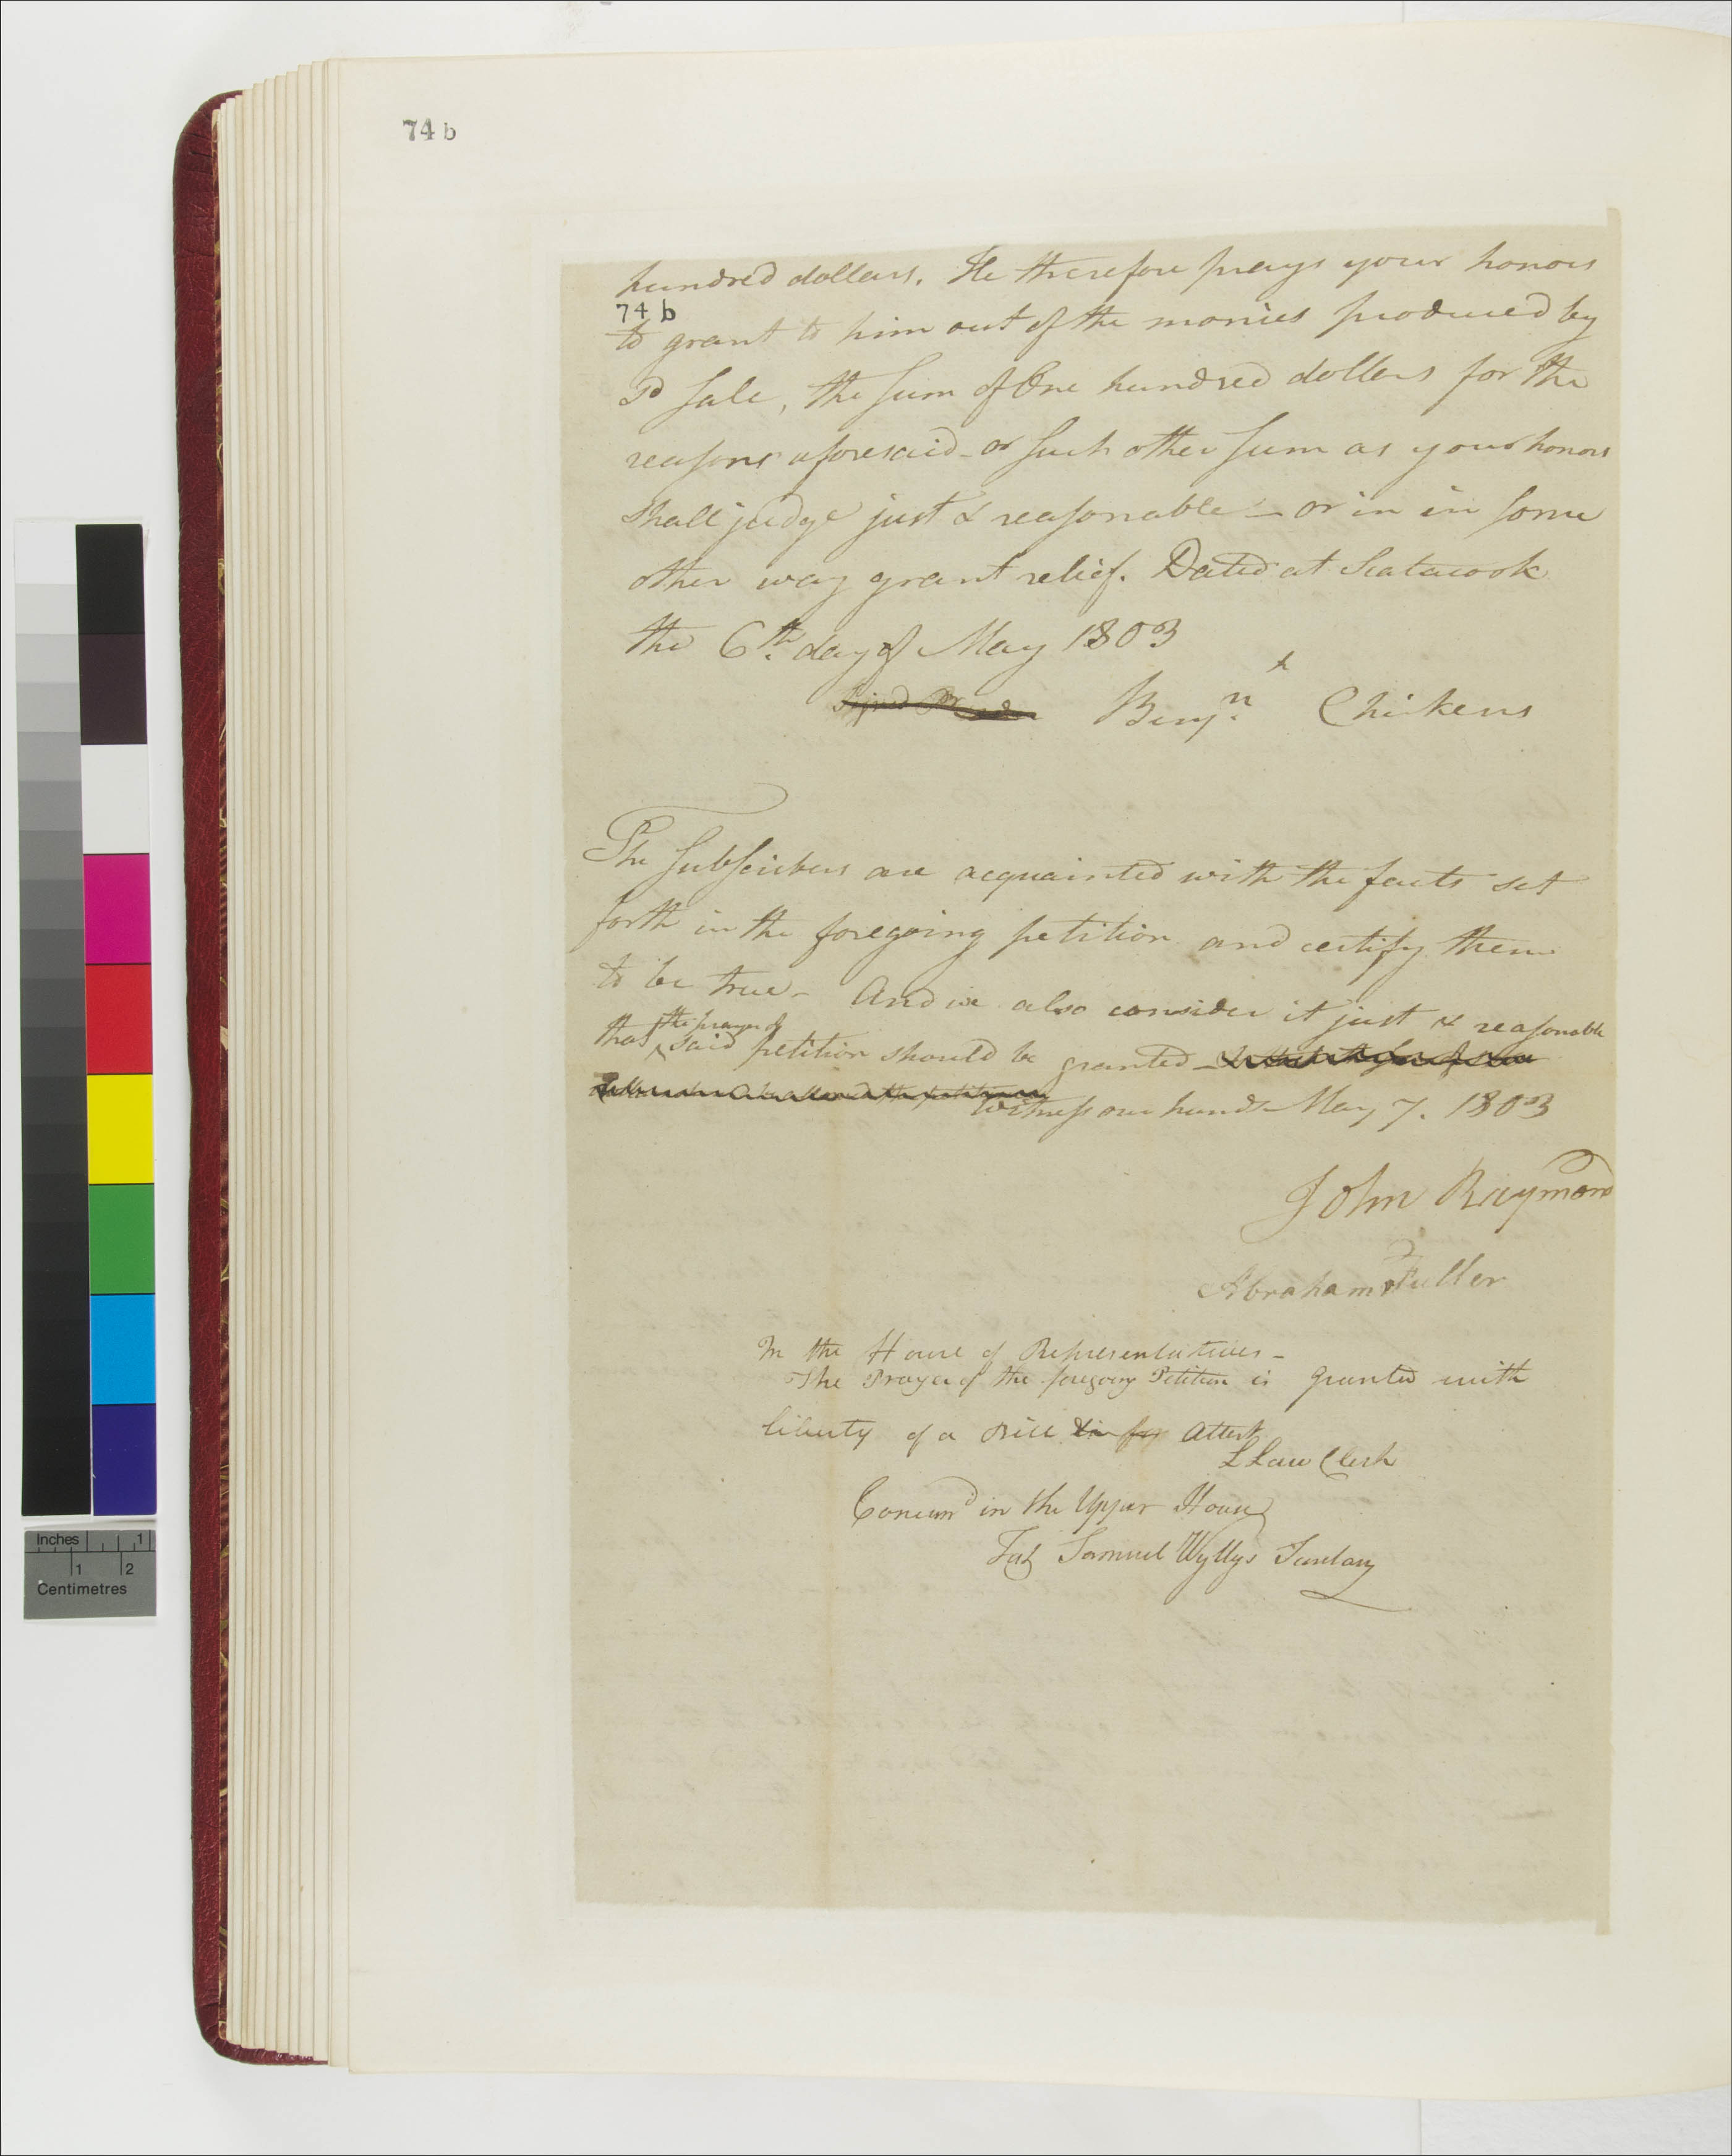 74 b
hundred dollars. He therefore prays your honors
74 b
to grant to him out of the monies produced by
sd sale, the sum of One hundred dollars for the
reasons aforesaid - or such other sum as your honors
shall judge just & reasonable - or in in some
other way grant relief. Dated at Scatacook
the 6th. day of May 1803
Benjn. Chickens
The subscribers are acquainted with the facts set
forth in the foregoing petition and certify them
to be true - And we also consider it just & reasonable
the prayer of
that said petition should be granted -
Witness our hands May 7. 1803
John Raymond
Abraham Fuller
In the House of Representatives -
The Prayer of the foregoing Petition is granted with
liberty of a Bill Attest
L Law Clerk
Concurrd in the Upper House
Samuel Wyllys Secretary
Inches 1
1 2
Centimetres